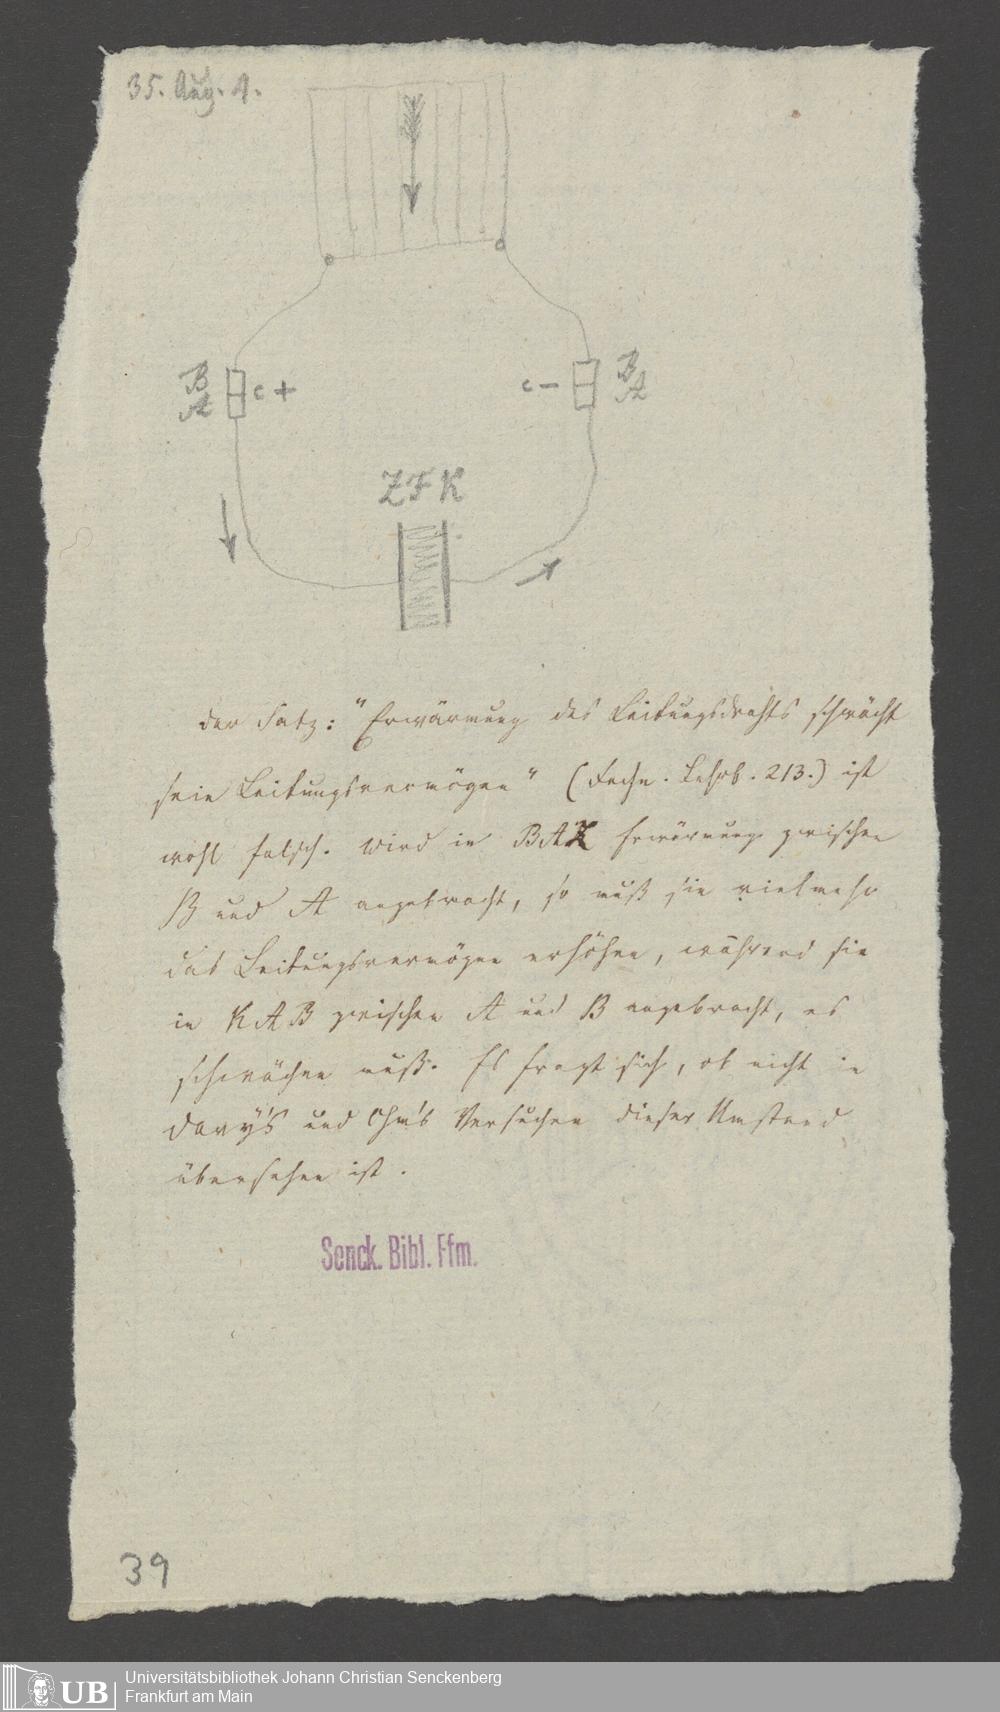 35. Aug. 4.
B
A c +
c - B
A
Z F K
Der Satz: "Erwärmung des Leitungsdrahts schwächt
sein Leitungsvermögen" (Fechn. Lehrb. 213.) ist
wohl falsch. Wird in BAZ Erwärmung zwischen
B und A angebracht, so muß sie vielmehr
das Leitungsvermögen erhöhen, während sie
in KAB zwischen A und B angebracht, es
schwächen muß. Es fragt sich, ob nicht in
Davy's und Ohm's Versuchen dieser Umstand
übersehen ist.
Senck. Bibl. Ffm.
39
UB
Universitätsbibliothek Johann Christian Senckenberg
Frankfurt am Main